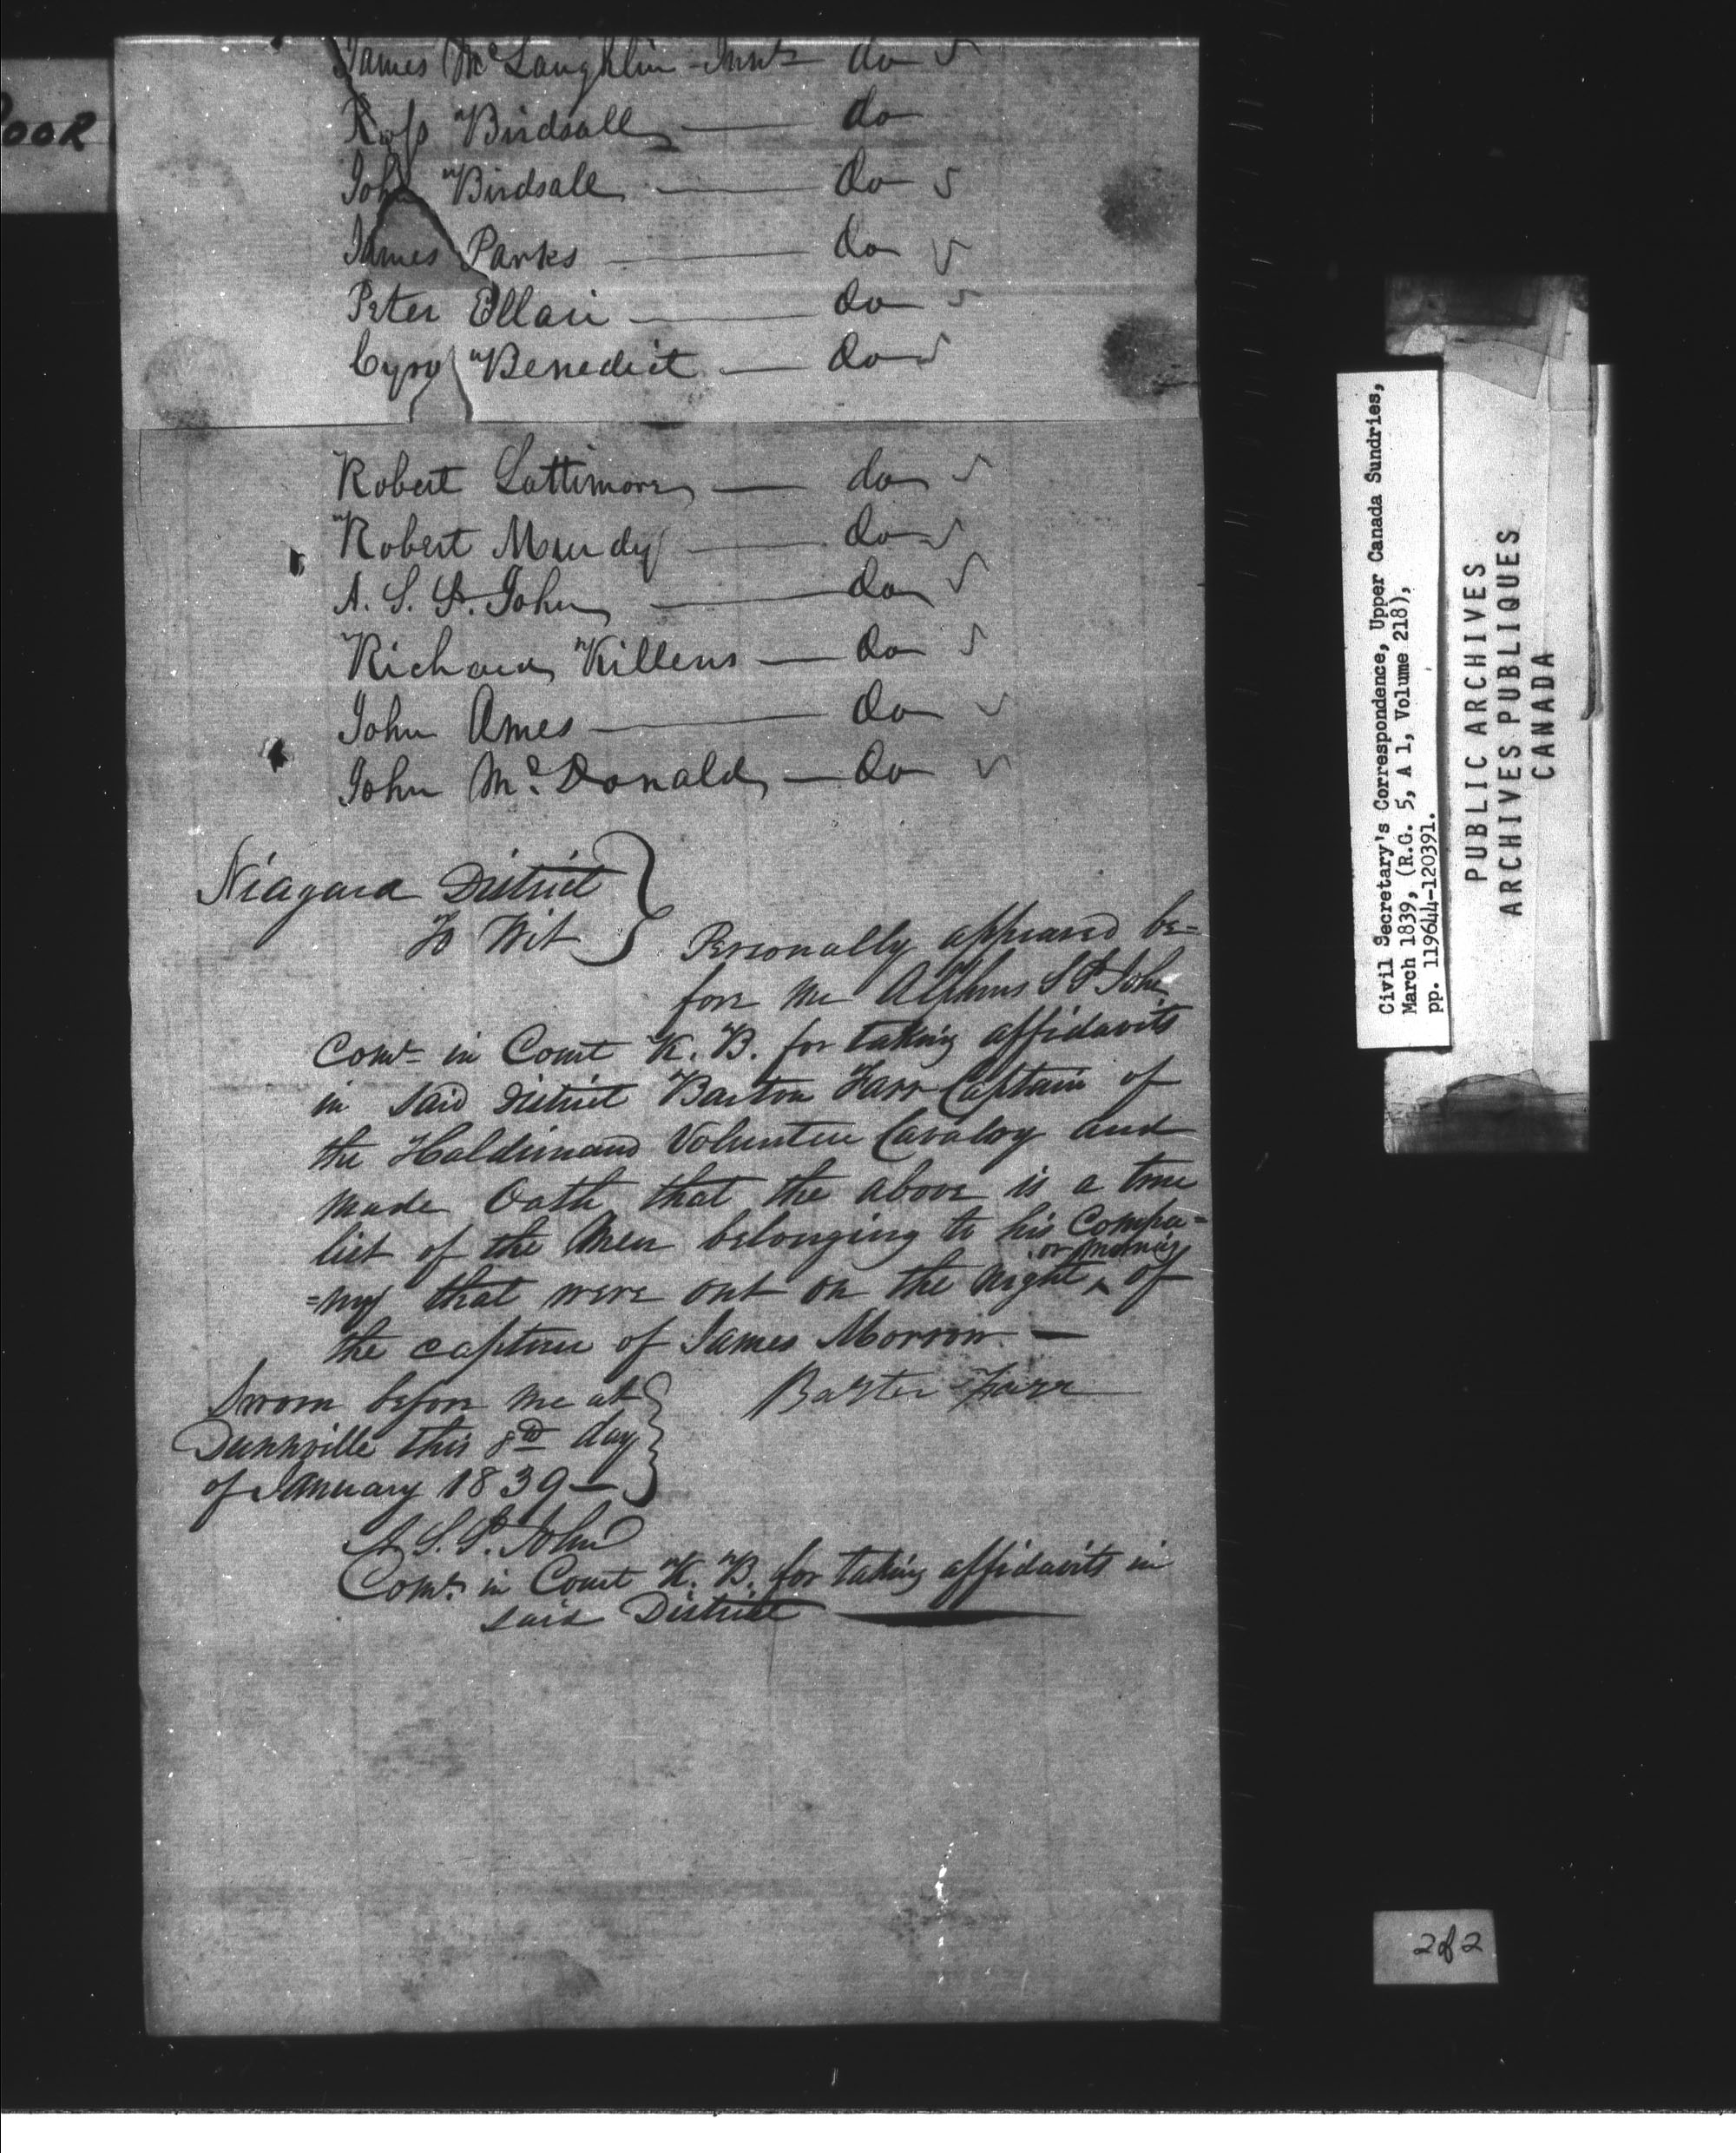 OOR
James McLaughlin - Junr do
Ross Birdsall — do
John Birdsall — do
James Parks — do
Peter Ellair — do
Benedict — do
Robert Lattimore — do
Robert Mundy — do
A. S. St. John — do
Richard Killens — do
John Ames — do
John McDonald — do
Niagara District
To Wit } Personally appeared be=
fore me Alpheus S St John
Comr in Court K. B. for taking affidavits
in said District Barton Farr Captain of
the Haldimand Volunteer Cavalry and
made Oath that the above is a true
list of the Men belonging to his Compa=
=ny that were out on the night ^ or morning of
the capture of James Morrow. —
Sworn before me at
Dunnville this 8th day
of January 1839 —
Baxter Farr
A. S. St. John
Comr in Court K. B. for taking affidavits in
said District
Civil Secretary's Correspondence, Upper Canada Sundries,
March 1839, (R.G. 5, A 1, Volume 218),
pp. 119644-120391.
PUBLIC ARCHIVES
ARCHIVES PUBLIQUES
CANADA
2 of 2